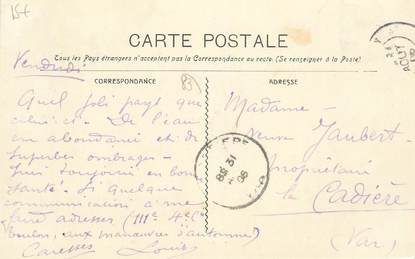 CARTE POSTALE
Tous les Pays étrangers n'acceptent pas la Correspondance au recto (Se renseigner à la Poste)
Vendredi
CORRESPONDANCE
ADRESSE
Quel joli pays que
celui-ci. De l'eau
en abondance et de
superbes ombrages.
Suis toujours en bonne
santé. Si quelque
communication à me
faire adresses (111e 4e C
Toulon, aux manœuvres d'automne)
Caresses Louis
Madame
veuve Jaubert
propriétaire
la Cadière
(Var)
AOUT